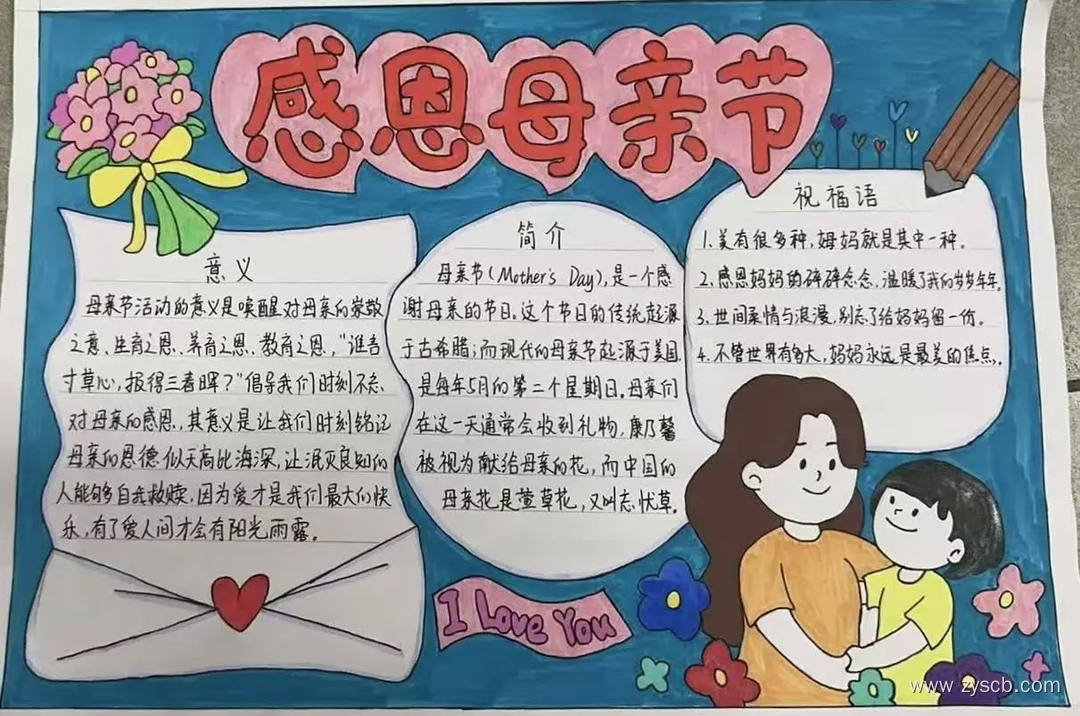 感恩母亲节
意义
母亲节活动的意义是唤醒对母亲的崇敬
之意、生育之恩、养育之恩、教育之恩，“谁言
寸草心，报得三春晖？”倡导我们时刻不忘
对母亲的感恩，其意义是让我们时刻铭记
母亲的恩德似天高比海深，让泯灭良知的
人能够自我救赎，因为爱才是我们最大的快
乐，有了爱人间才会有阳光雨露。
简介
母亲节(Mother's Day)，是一个感
谢母亲的节日。这个节日的传统起源
于古希腊；而现代的母亲节起源于美国
是每年5月的第二个星期日。母亲们
在这一天通常会收到礼物，康乃馨
被视为献给母亲的花，而中国的
母亲花是萱草花，又叫忘忧草。
祝福语
1.美有很多种，妈妈就是其中一种。
2.感恩妈妈的碎碎念念，温暖了我的岁岁年年。
3.世间柔情与浪漫，别忘了给妈妈留一份。
4.不管世界有多大，妈妈永远是最美的焦点。
I Love You
www.zyscb.com